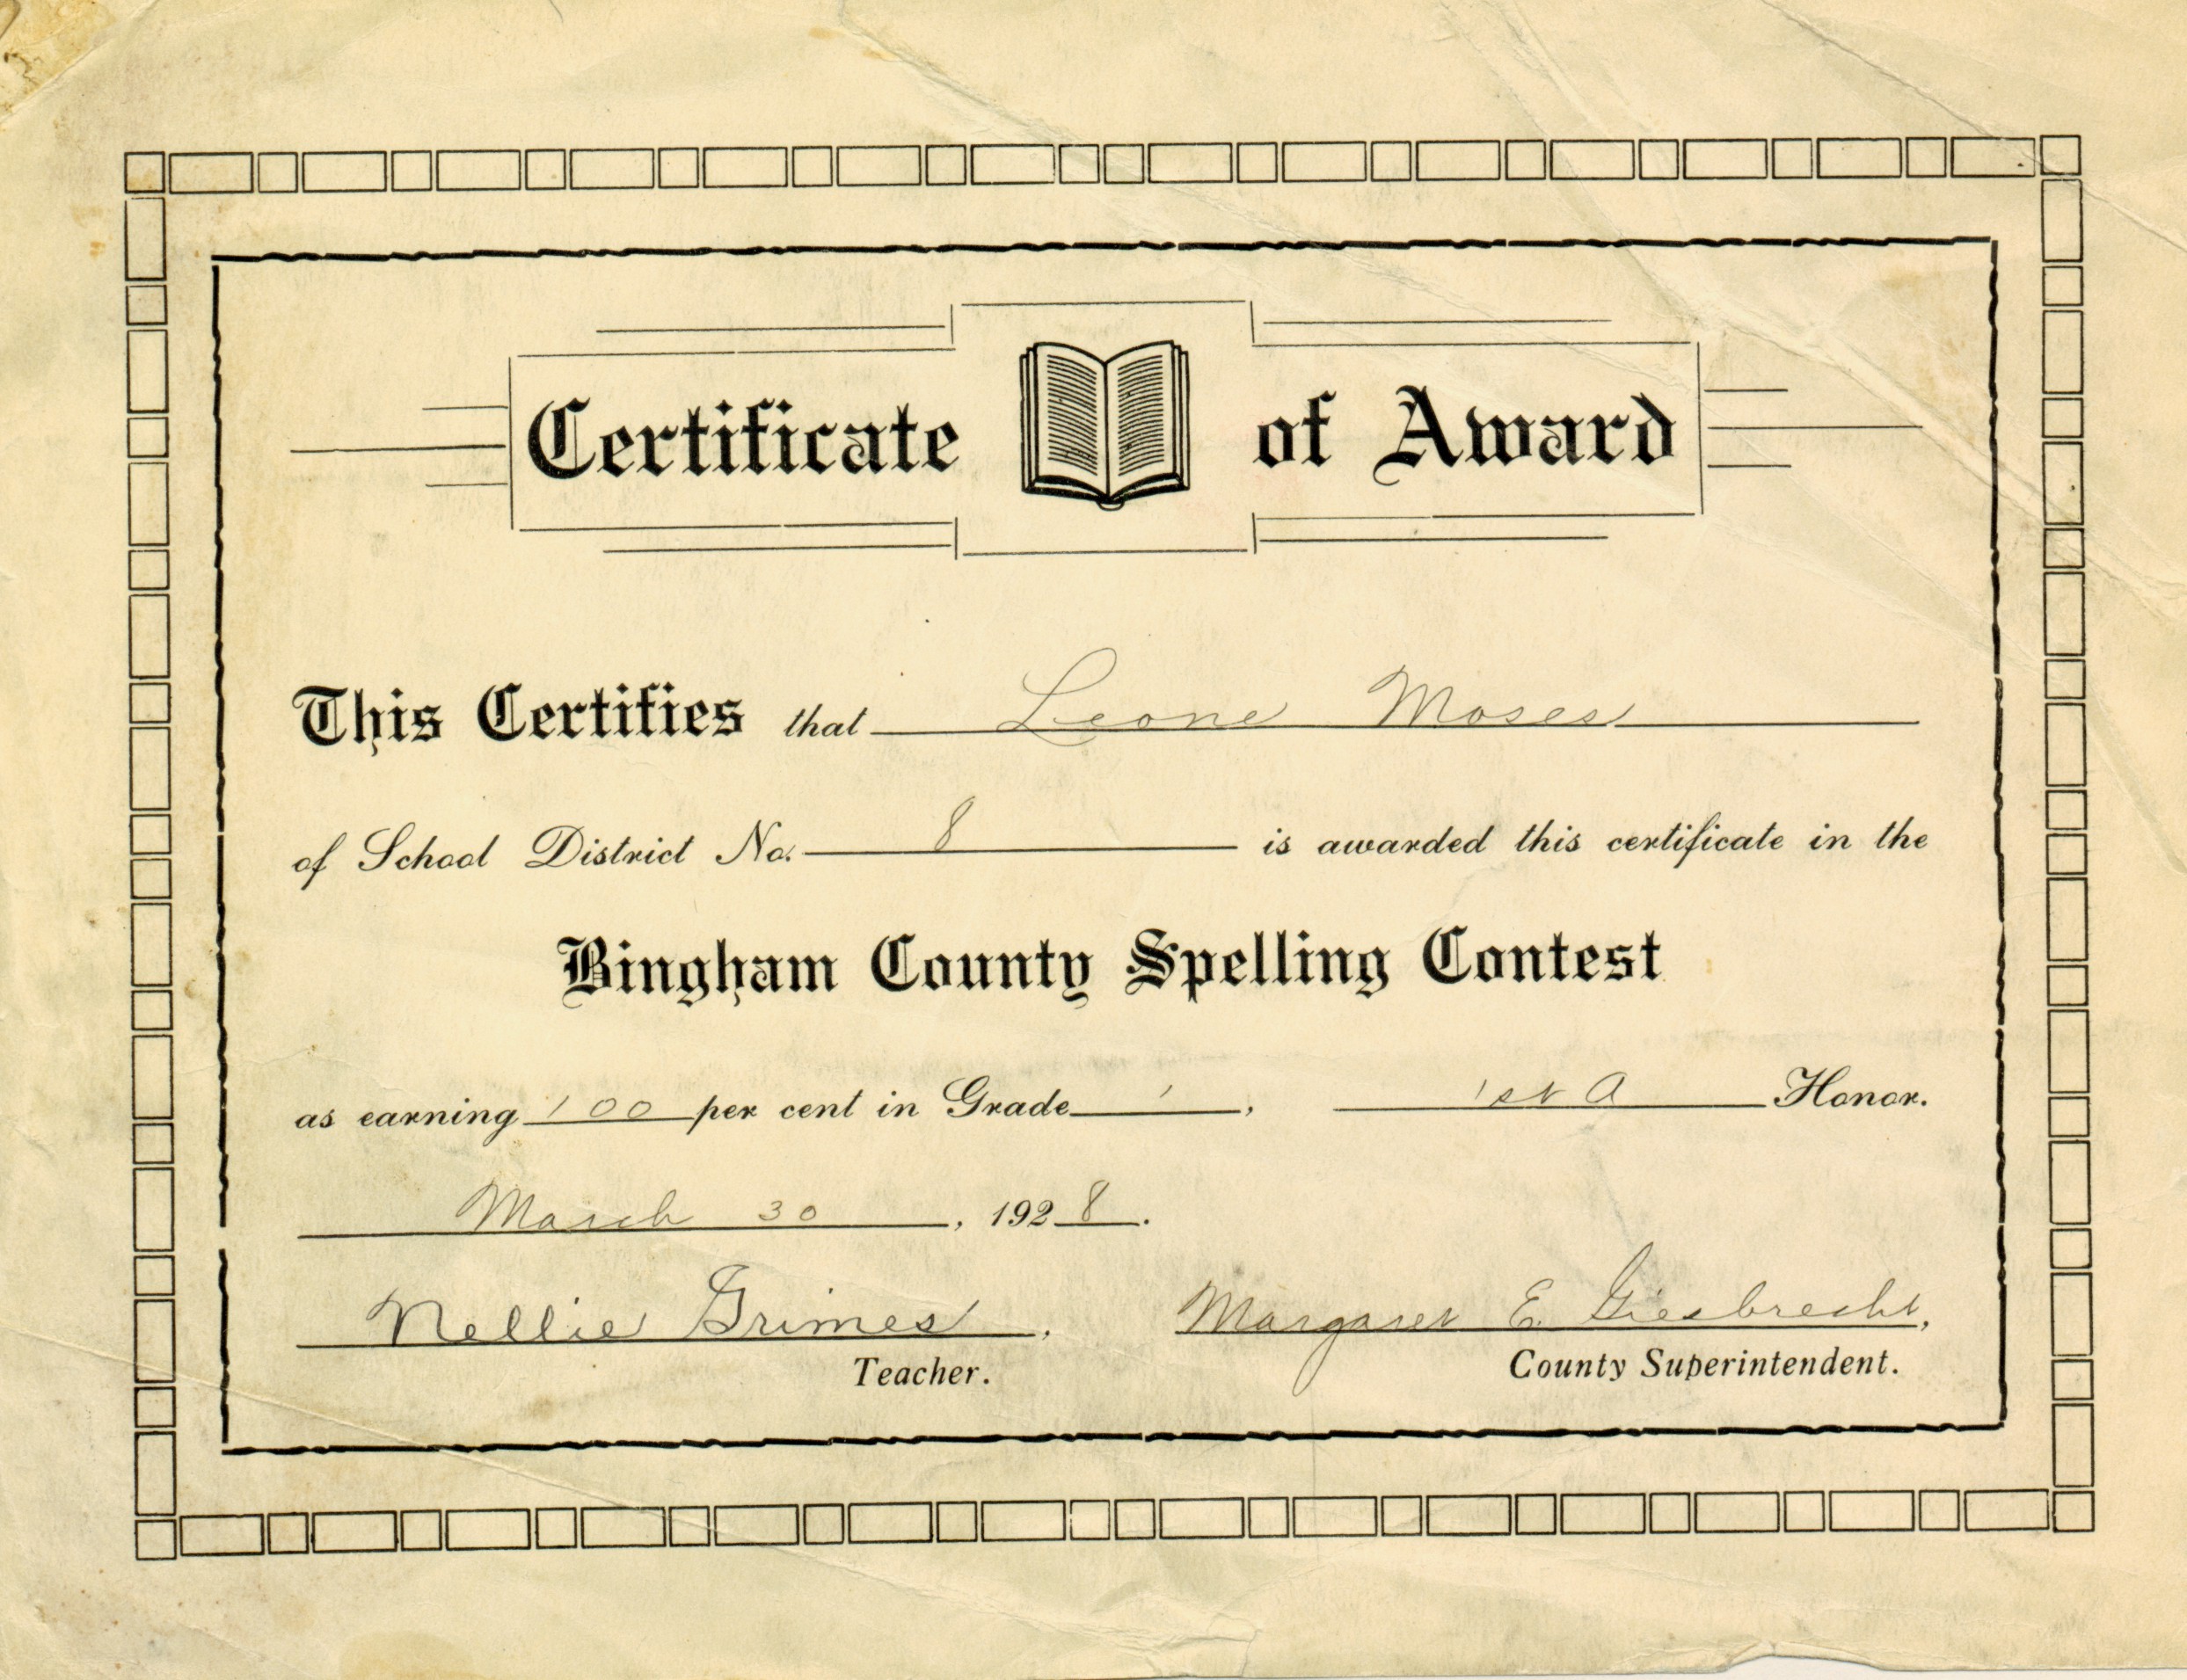 Certificate of Award
This Certifies that Leone Moses
of School District No. 8 is awarded this certificate in the
Bingham County Spelling Contest
as earning 100 per cent in Grade 1, 1st A Honor.
March 30, 1928.
Nellie Grimes, Margaret E. Giesbrecht,
Teacher. County Superintendent.